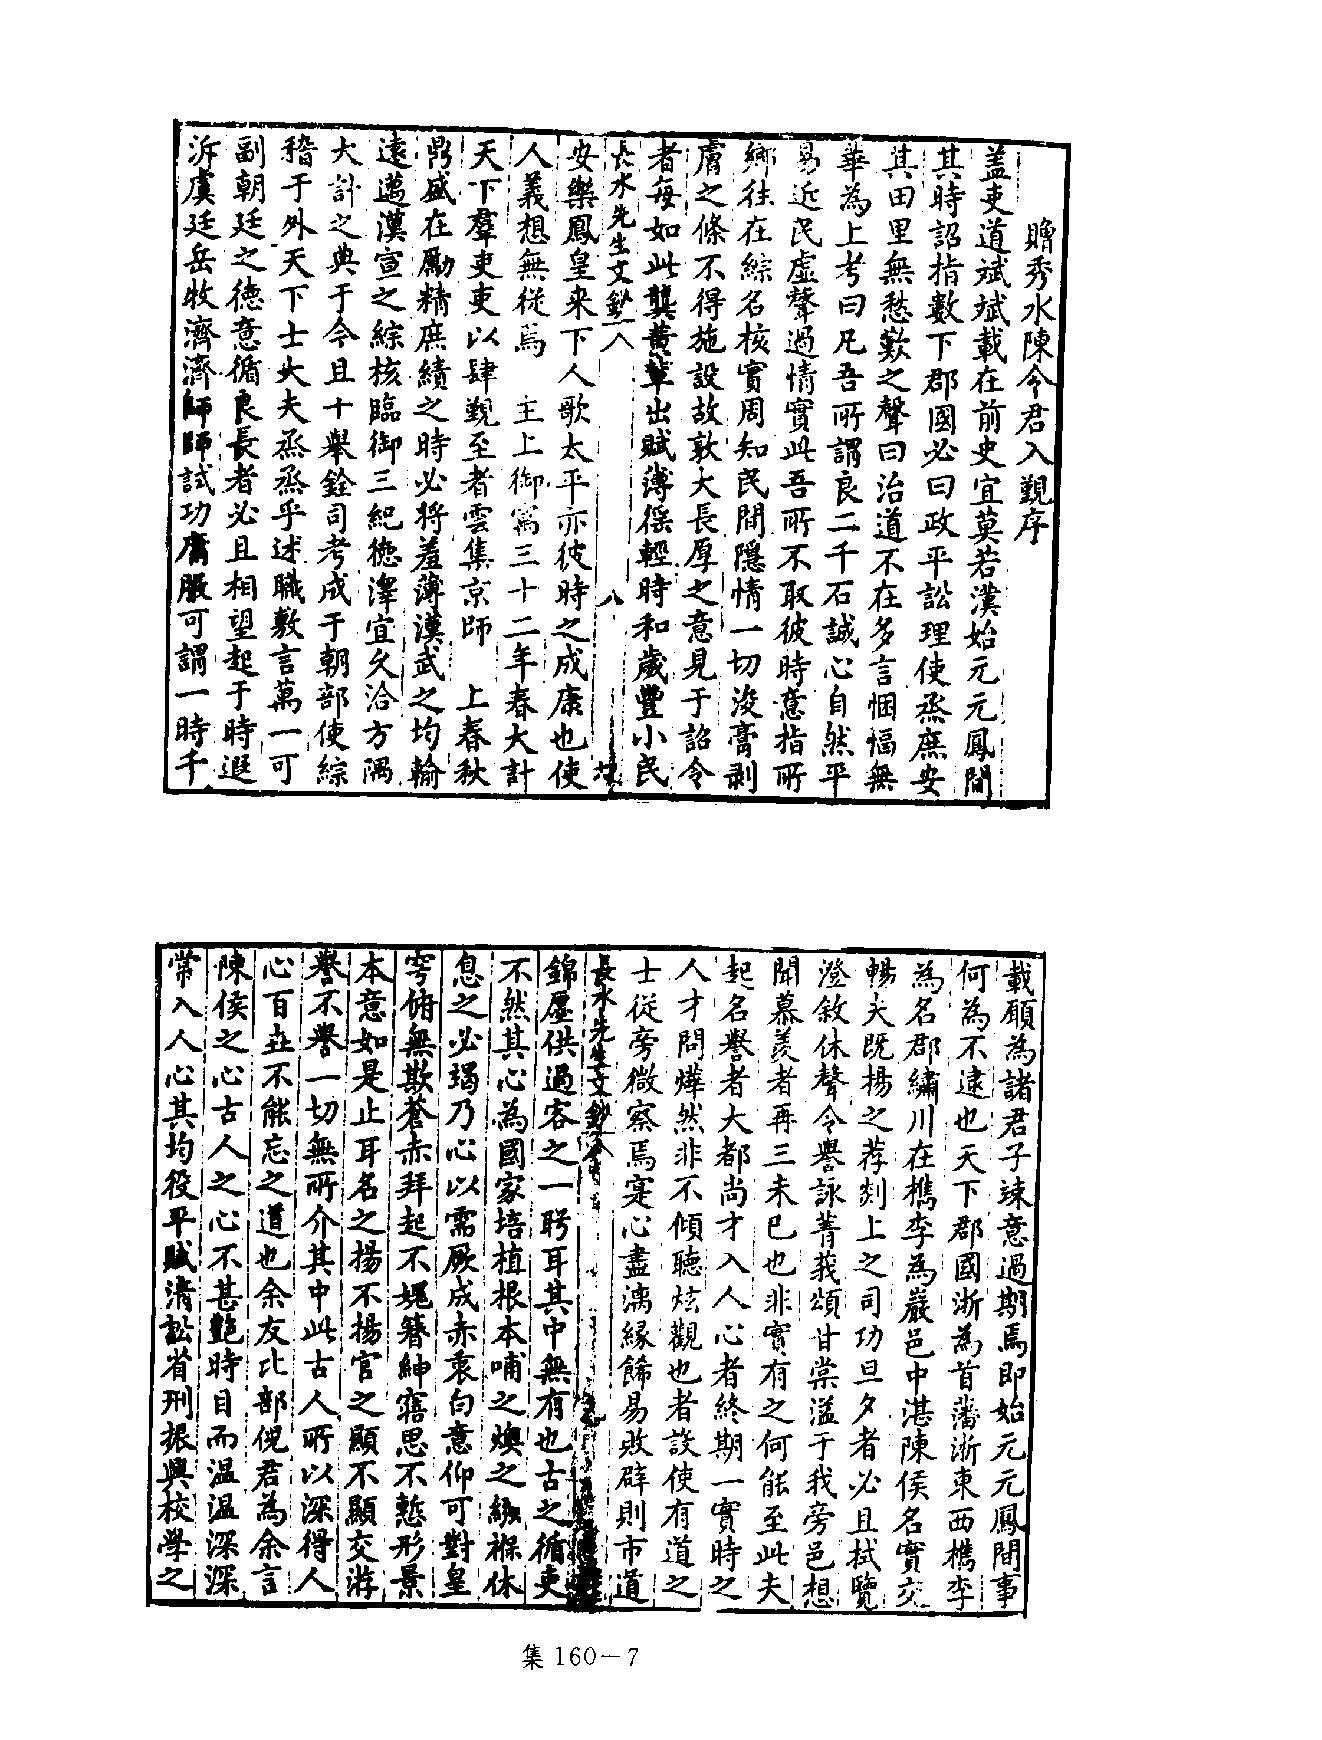 贈秀水陳令君入覲序
盖吏道斌斌載在前史宜莫若漢始元元鳳間
其時詔指數下郡國必曰政平訟理使烝庶安
其田里無愁歎之聲曰治道不在多言悃愊無
華為上考曰凡吾所謂良二千石誠心自然平
易近民虛聲過情實此吾所不取彼時意指所
鄉往在綜名核實周知民間隱情一切浚膏剥
膚之條不得施設故敦大長厚之意見于詔令
者每如此龔黃輩出賦薄徭輕時和歲豐小民
長水先生文鈔 八 八
安樂鳳皇来下人歌太平亦彼時之成康也使
人義想無從焉 主上御寓三十二年春大計
天下羣吏吏以肆覲至者雲集京師 上春秋
鼎盛在勵精庶績之時必將羞薄漢武之均輸
遠邁漢宣之綜核臨御三紀德澤宜久洽方隅
大計之典于今且十舉銓司考成于朝部使綜
稽于外天下士大夫烝烝乎述職敷言萬一可
副朝廷之德意循良長者必且相望起于時遐
泝虞廷岳牧濟濟師師試功庸服可謂一時千
載願為諸君子竦意過期焉即始元元鳳間事
何為不逮也天下郡國浙為首藩浙東西檇李
為名郡繡川在檇李為巖邑中湛陳侯名實交
暢夫既揚之荐剡上之司功旦夕者必且拭覽
澄敘休聲令譽詠菁莪頌甘棠溢于我旁邑想
聞慕羨者再三未已也非實有之何能至此夫
起名譽者大都尚才入人心者終期一實時之
人才問燁然非不傾聽炫觀也者設使有道之
士從旁微察焉寔心盡漓緣餙易敗辟則市道
長水先生文鈔
錦屋供過客之一眄耳其中無有也古之循吏
不然其心為國家培植根本哺之燠之繈褓休
息之必竭乃心以需厥成赤衷白意仰可對皇
穹俯無欺蒼赤拜起不媿簪紳寤思不慙形景
本意如是止耳名之揚不揚官之顯不顯交游
譽不譽一切無所介其中此古人所以深得人
心百歲不能忘之道也余友比部倪君為余言
陳侯之心古人之心不甚艷時目而温温深深
常入人心其均役平賦清訟省刑振興校學之
集 160－7